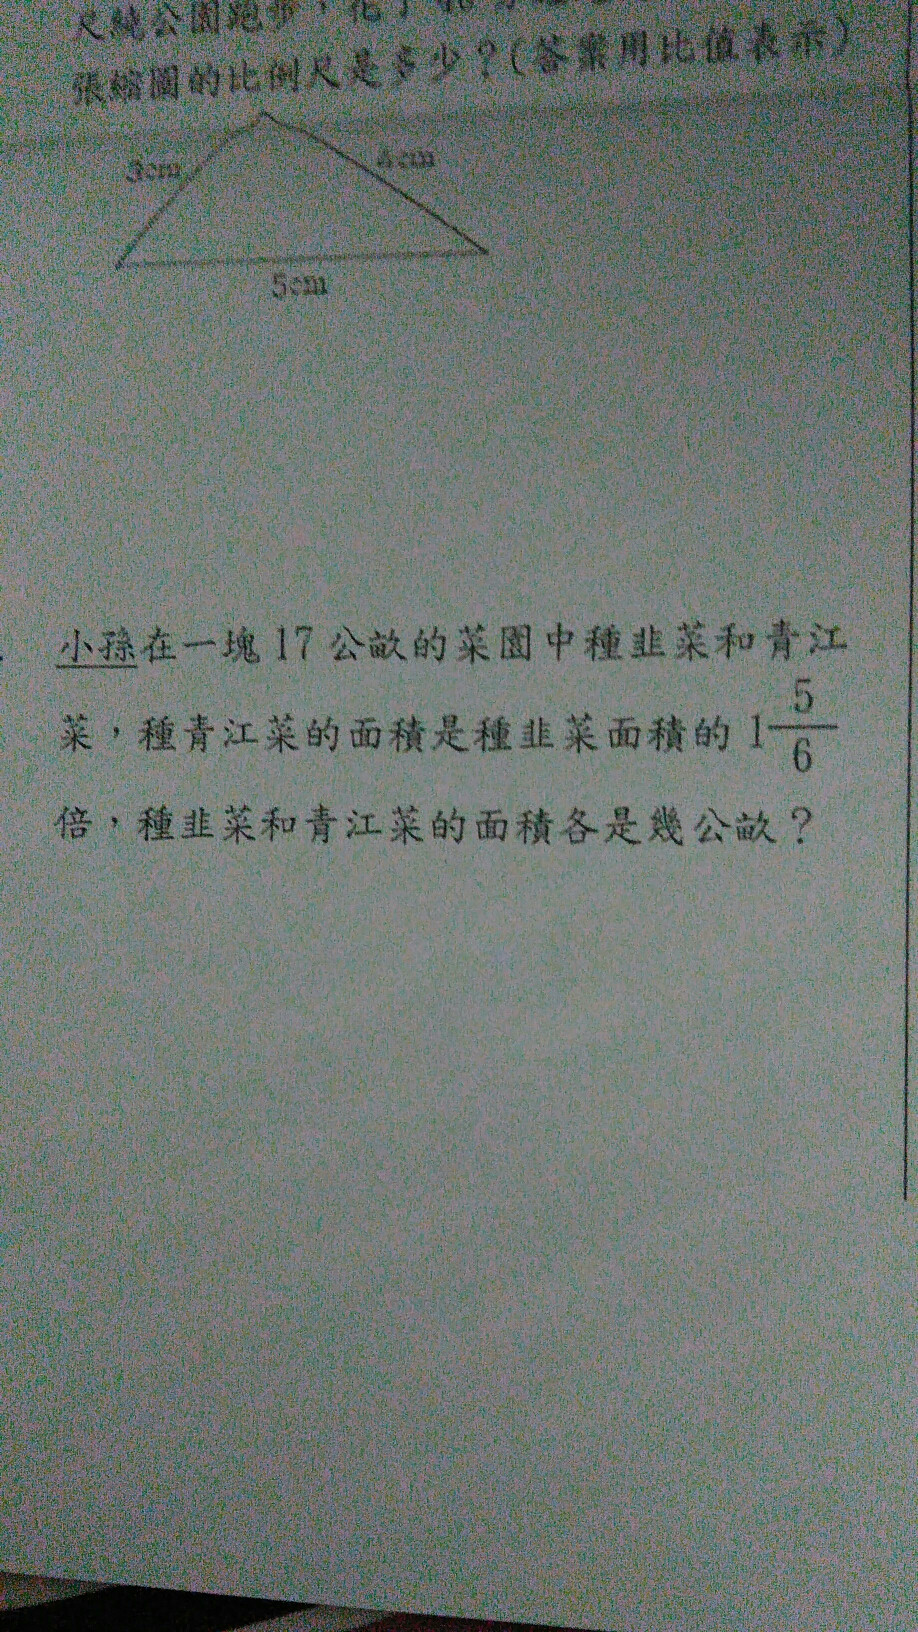 尺繞公園跑步，花了
張縮圖的比例尺是多少？(答案用比值表示)
3cm
4cm
5cm
小孫在一塊17公畝的菜園中種韭菜和青江
菜，種青江菜的面積是種韭菜面積的1 5/6
倍，種韭菜和青江菜的面積各是幾公畝？